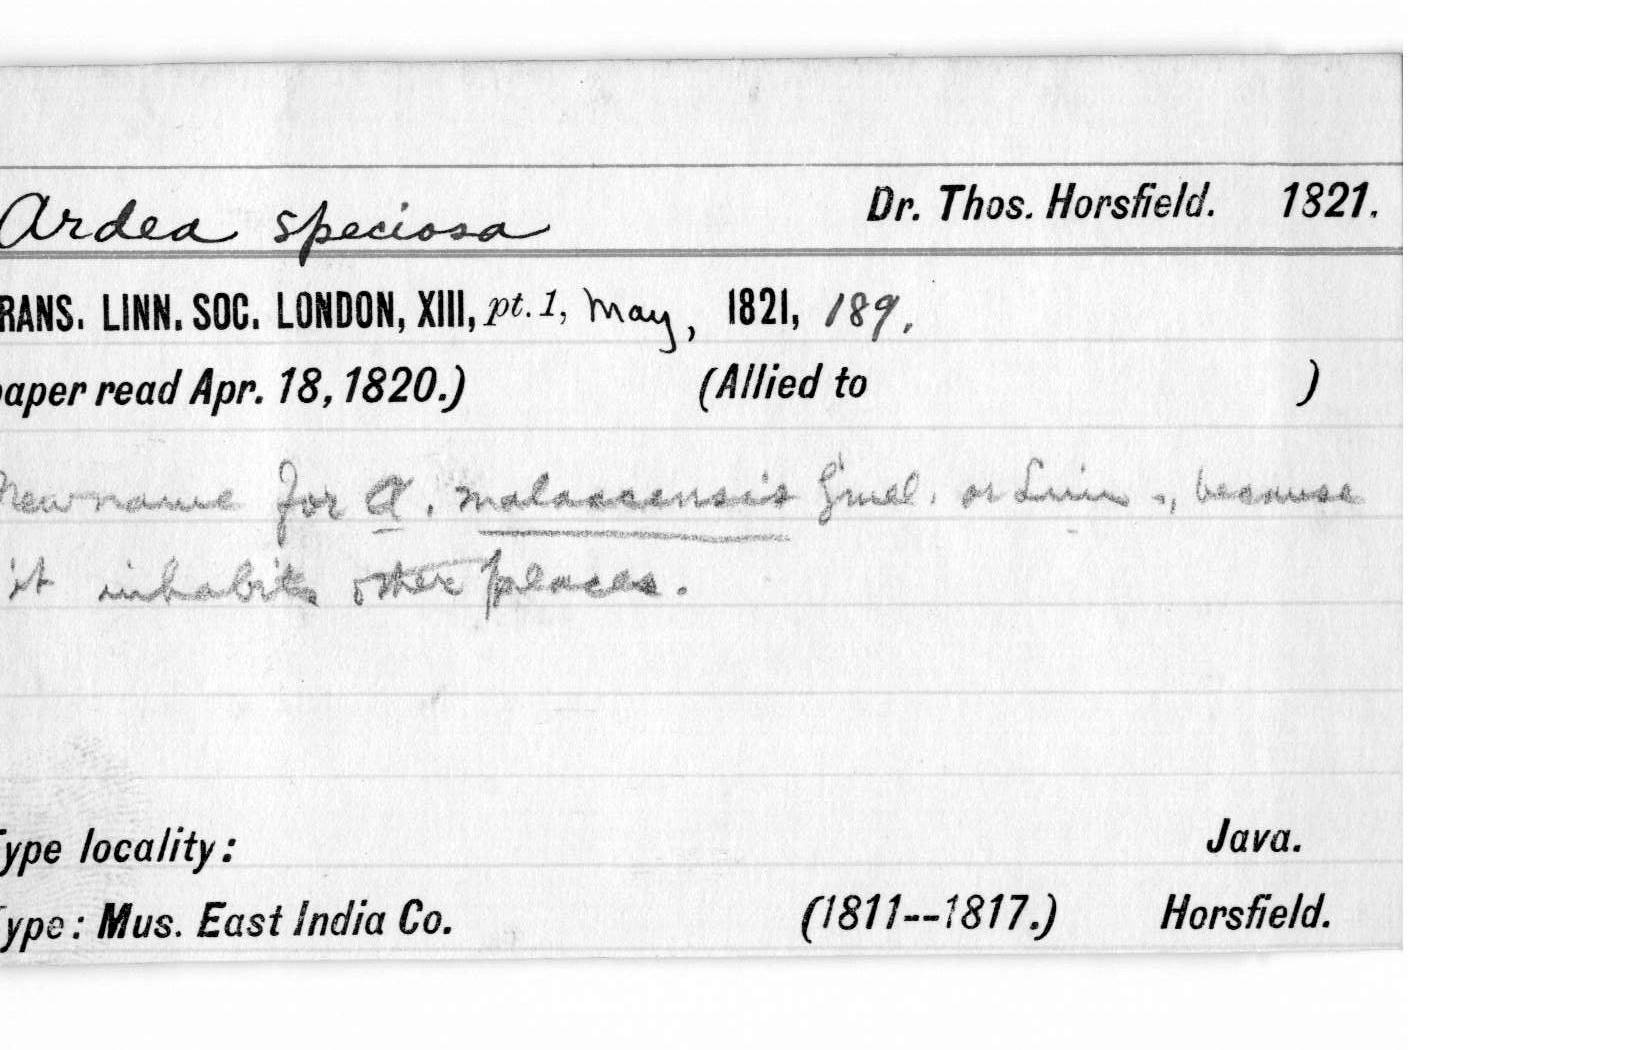 Ardea speciosa Dr. Thos. Horsfield. 1821.
RANS. LINN. SOC. LONDON, XIII, pt. 1, May, 1821, 189.
paper read Apr. 18, 1820.) (Allied to )
New name for A. malaccensis Gmel. or Linn., because
it inhabits other places.
Type locality: Java.
Type: Mus. East India Co. (1811--1817.) Horsfield.